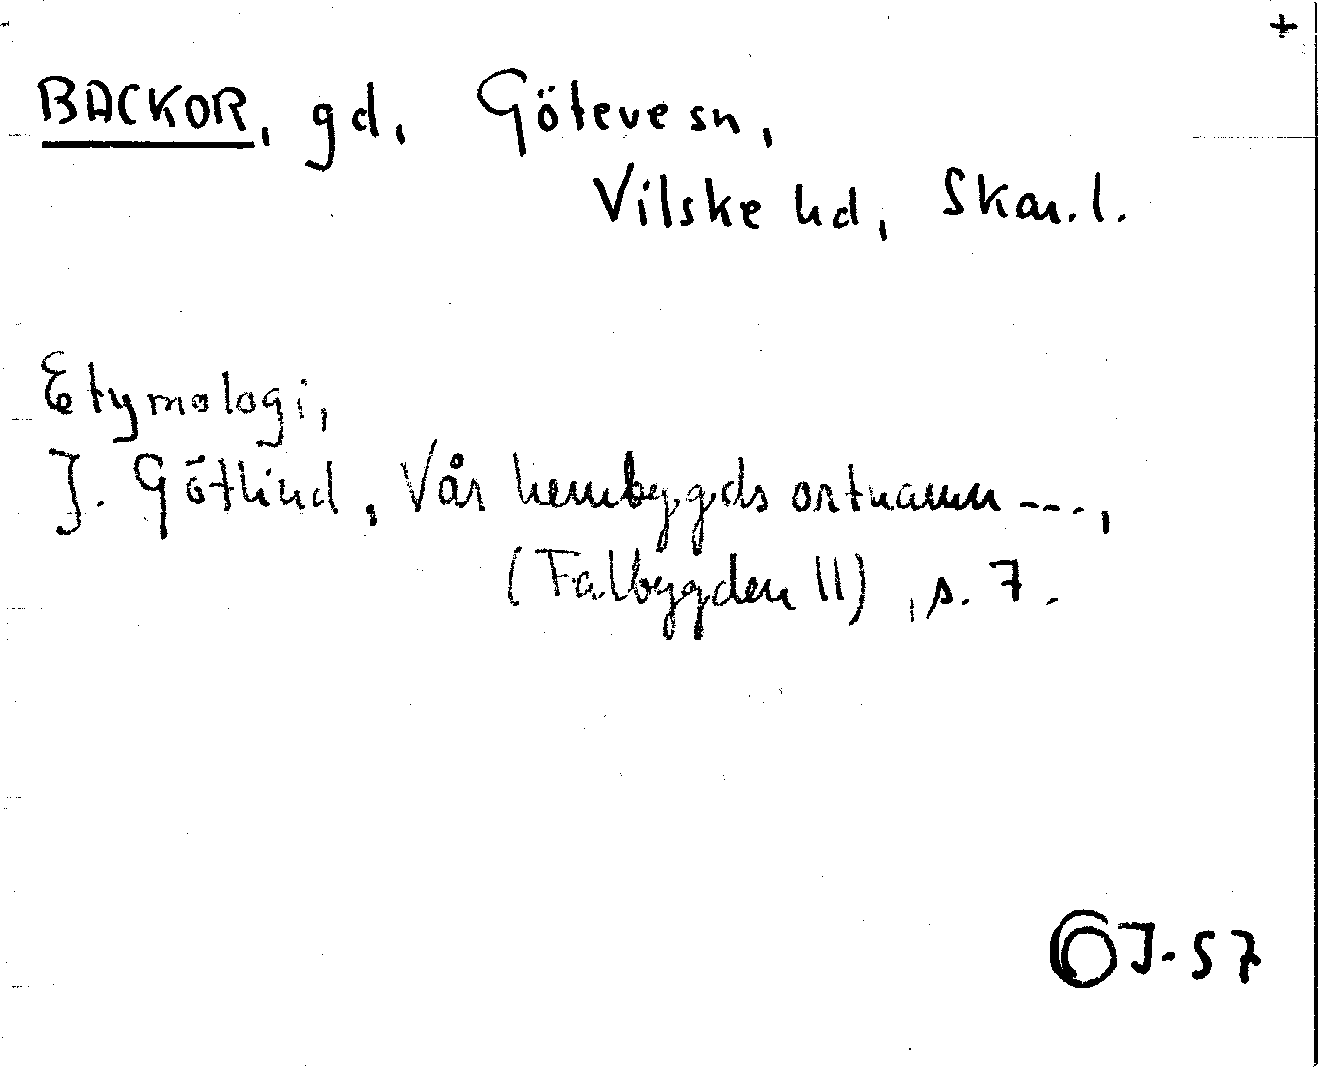 +
BACKOR, gd, Götevesn,
Vilske hd, Skar. l.
Etymologi,
J. Götlind, Vår hembygds ortnamn ---,
(Falbygden II), s. 7.
J-57